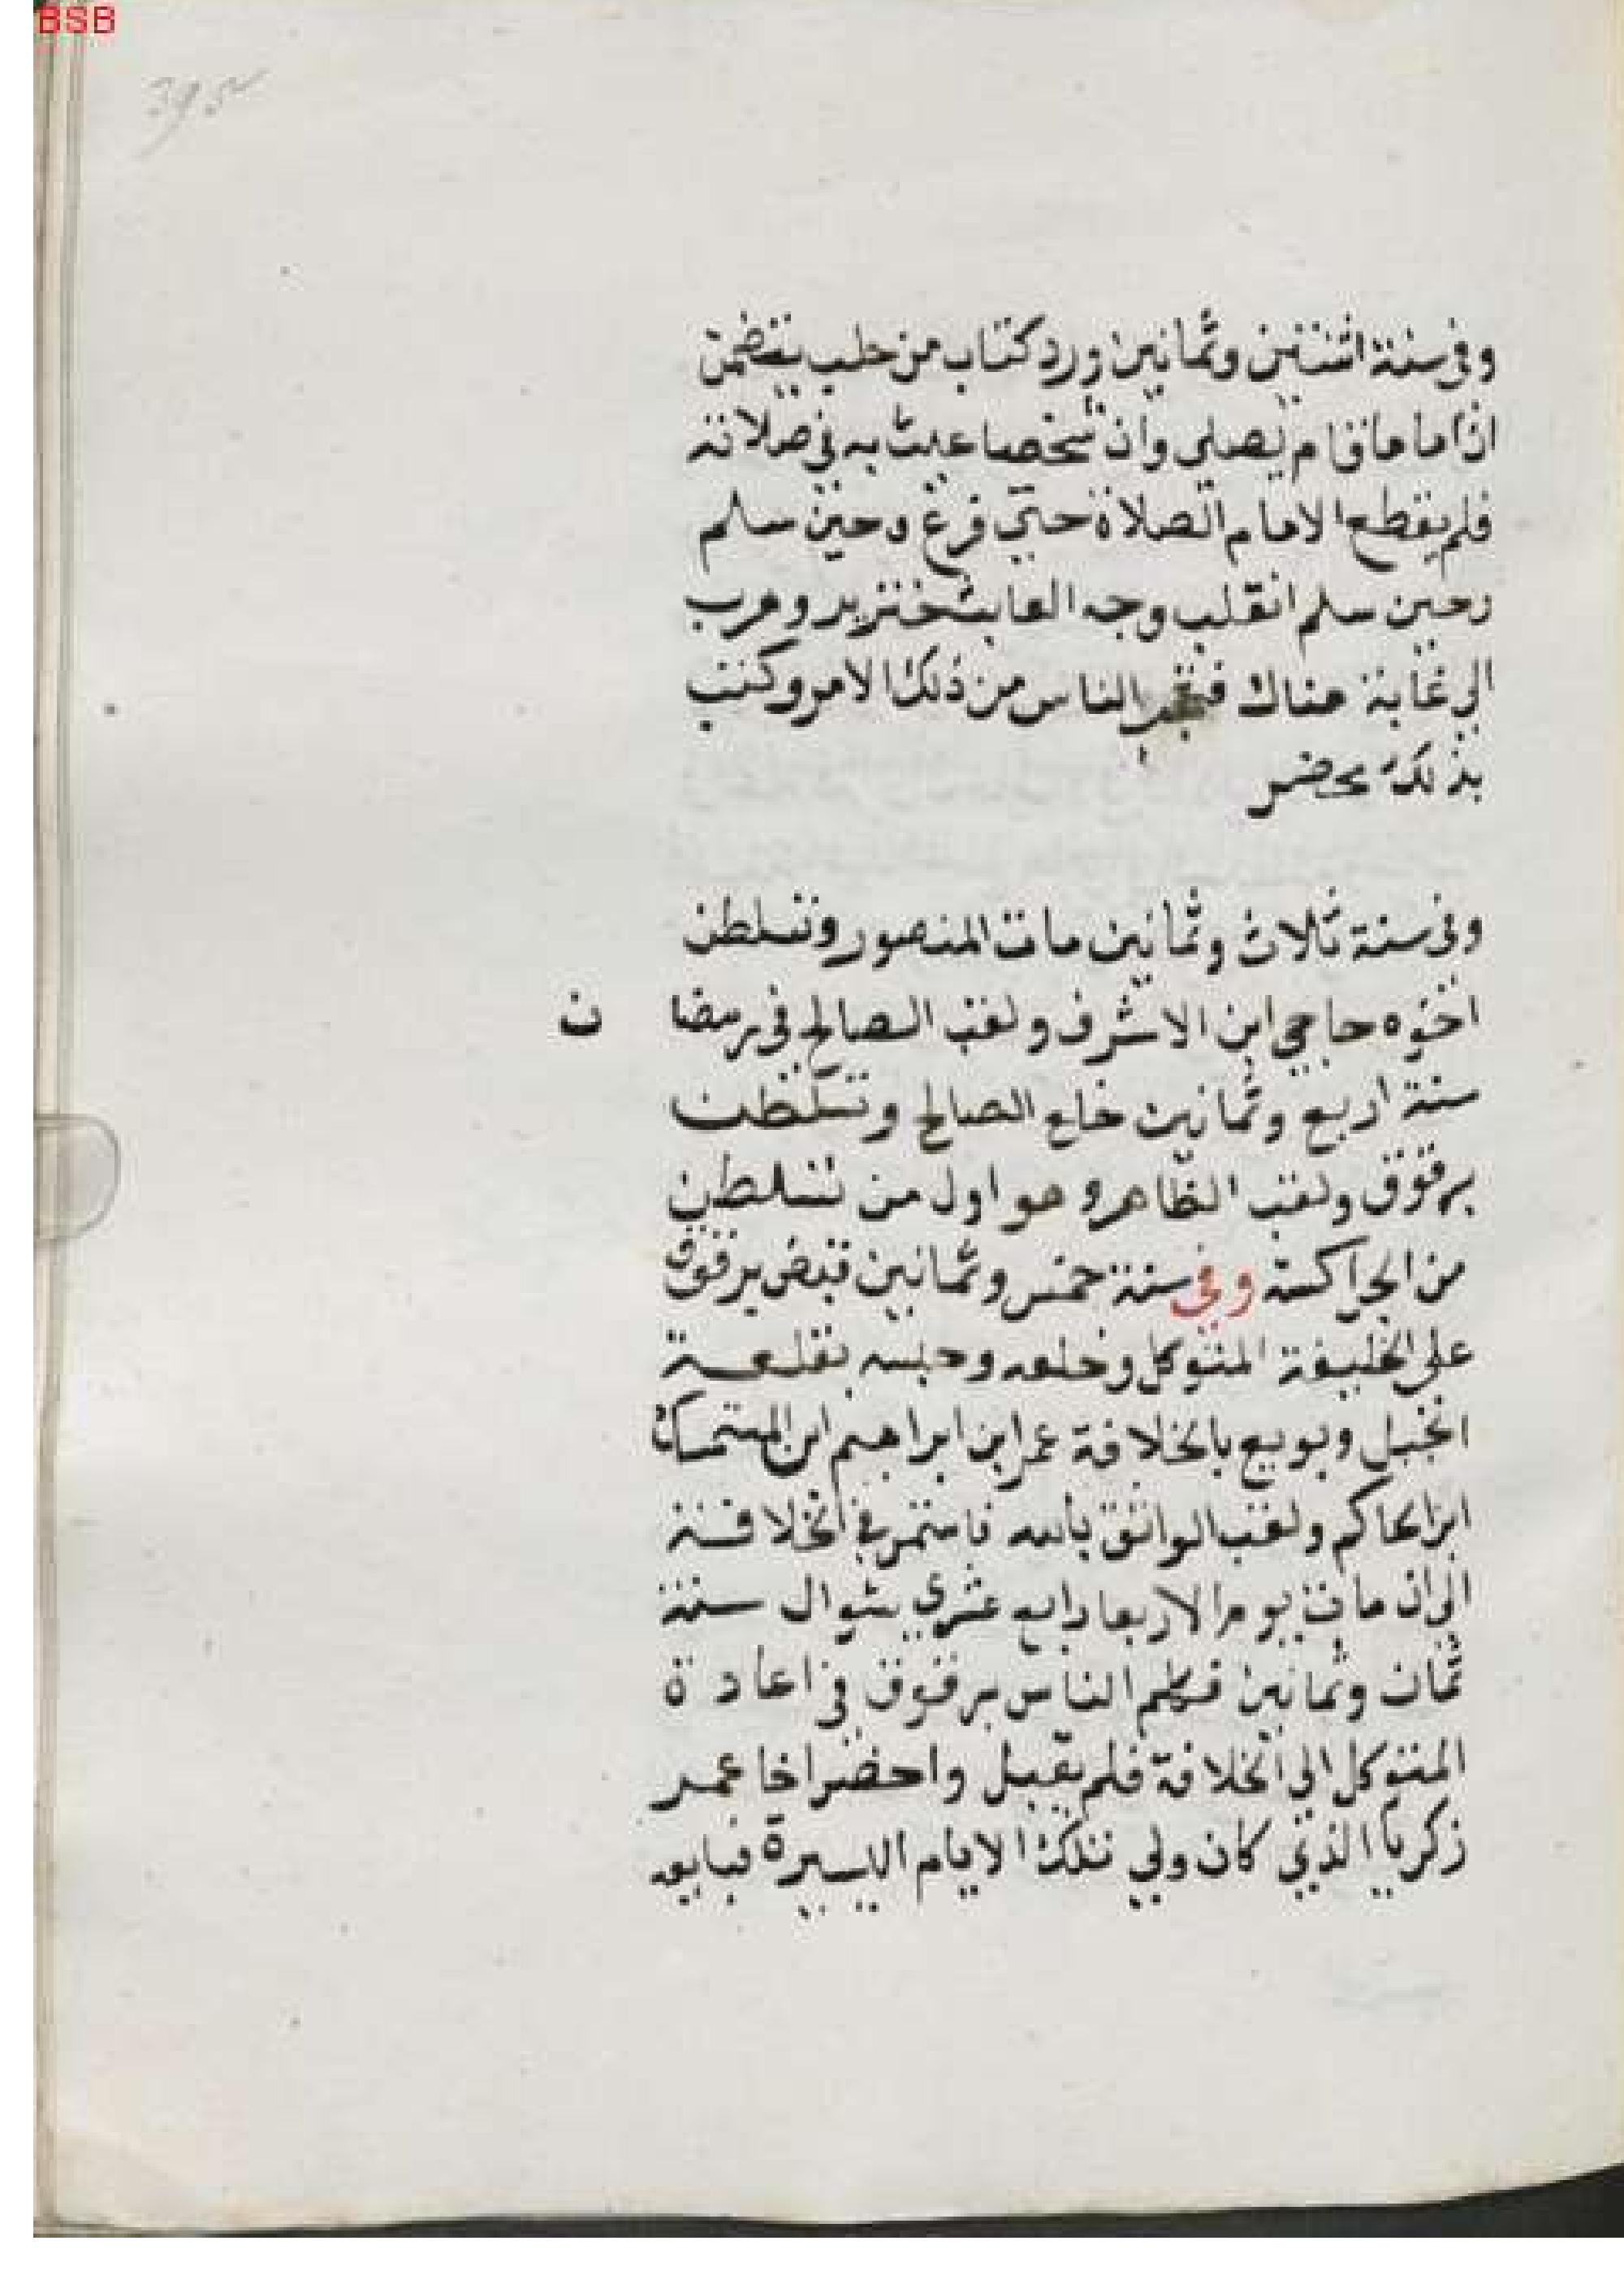 BSB
395
وفي سنة اثنتين وثمانين ورد كتاب من حلب يتضمن
ان اماما قام يصلي وان شخصا عبث به في صلاته
فلم يقطع الامام الصلاة حتى فرغ وحين سلم
وحين سلم انقلب وجه العابث خنزير وهرب
الي غابة هناك الناس من ذلك الامر وكتب
بذلك محضر
وفي سنة ثلاث وثمانين مات المنصور وتسلطن
اخوه حاجي ابن الاشرف ولقب الصالح في رمضا ن
سنة اربع وثمانين خلع الصالح وتسلطن
برقوق ولقب الظاهر وهو اول من تسلطن
من الجراكسة وفي سنة خمس وثمانين قبض برقوق
على الخليفة المتوكل وخلعه وحبسه بقلعة
الجبل وبويع بالخلافة عمر ابن ابراهيم ابن المستمسك
ابن الحاكم ولقب الواثق بالله فاستمر في الخلافة
الى ان مات يوم الاربعا رابع عشري شوال سنة
ثمان وثمانين فكلم الناس برقوق في اعادة
المتوكل الي الخلافة فلم يقبل واحضر اخا عمر
زكريا الذي كان ولي تلك الايام اليسيرة فبايعه